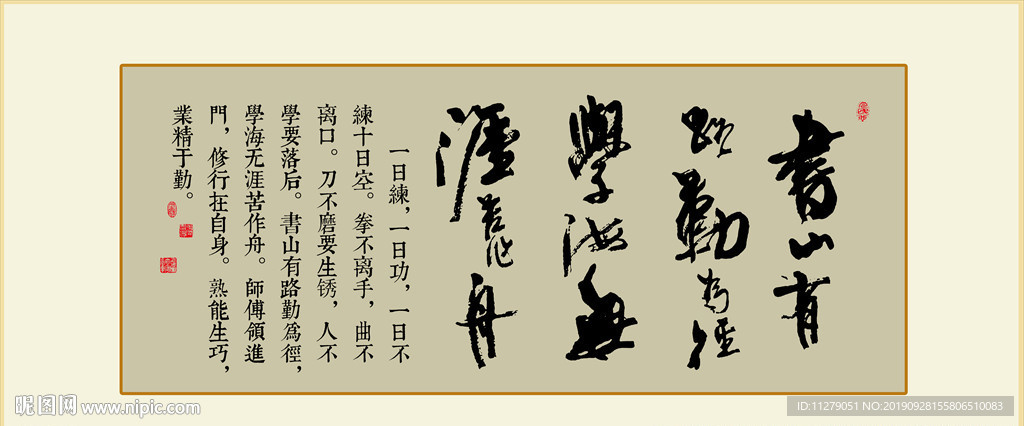 書山有
路勤為徑
學海無
涯苦作舟
一日練，一日功，一日不
練十日空。拳不离手，曲不
离口。刀不磨要生锈，人不
學要落后。書山有路勤爲徑，
學海无涯苦作舟。師傅領進
門，修行在自身。熟能生巧，
業精于勤。
昵图网 www.nipic.com
ID:11279051 NO:20190928155806510083